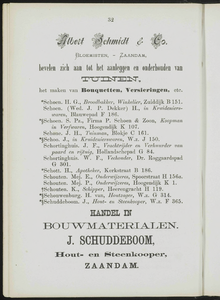 52
Albert Schmidt & Co.
BLOEMISTEN, — ZAANDAM,
bevelen zich aan tot het aanleggen en onderhouden van
TUINEN,
het maken van Bouquetten, Versieringen, etc.
*Schoen. H. G., Broodbakker, Winkelier, Zuiddijk B 151.
Schoen. (Wed. J. P. Dekker) H., in Kruidenierswaren,
Blauwepad F 186.
*Schoen. S. Pz., Firma P. Schoen & Zoon, Koopman
in Verfwaren, Hoogendijk K 107.
Schone. J. H., Tuinman, Blokje C 161.
*Schon. J., in Kruidenierswaren, W.z. J 150.
Schortinghuis. J. F., Voorkrijder en Verhuurder van
paard en rijtuig, Hollandschepad G 84.
Schortinghuis. W. F., Verhuurder, Dr. Roggardspad
G 301.
*Schott. H., Apotheker, Kerkstraat B 186.
Schouten. Mej. E., Onderwijzeres, Spoorstraat H 154a.
Schouten. Mej. P., Onderwijzeres, Hoogendijk K 1.
Schouten. K., Schipper, Heerengracht H 119.
*Schouwenburg. H. van, Hovenier, W.z. G 314a.
*Schuddeboom. J., Hout- en Steenkooper, W.z. F 365.
HANDEL IN
BOUWMATERIALEN.
J. SCHUDDEBOOM,
Hout- en Steenkooper,
ZAANDAM.